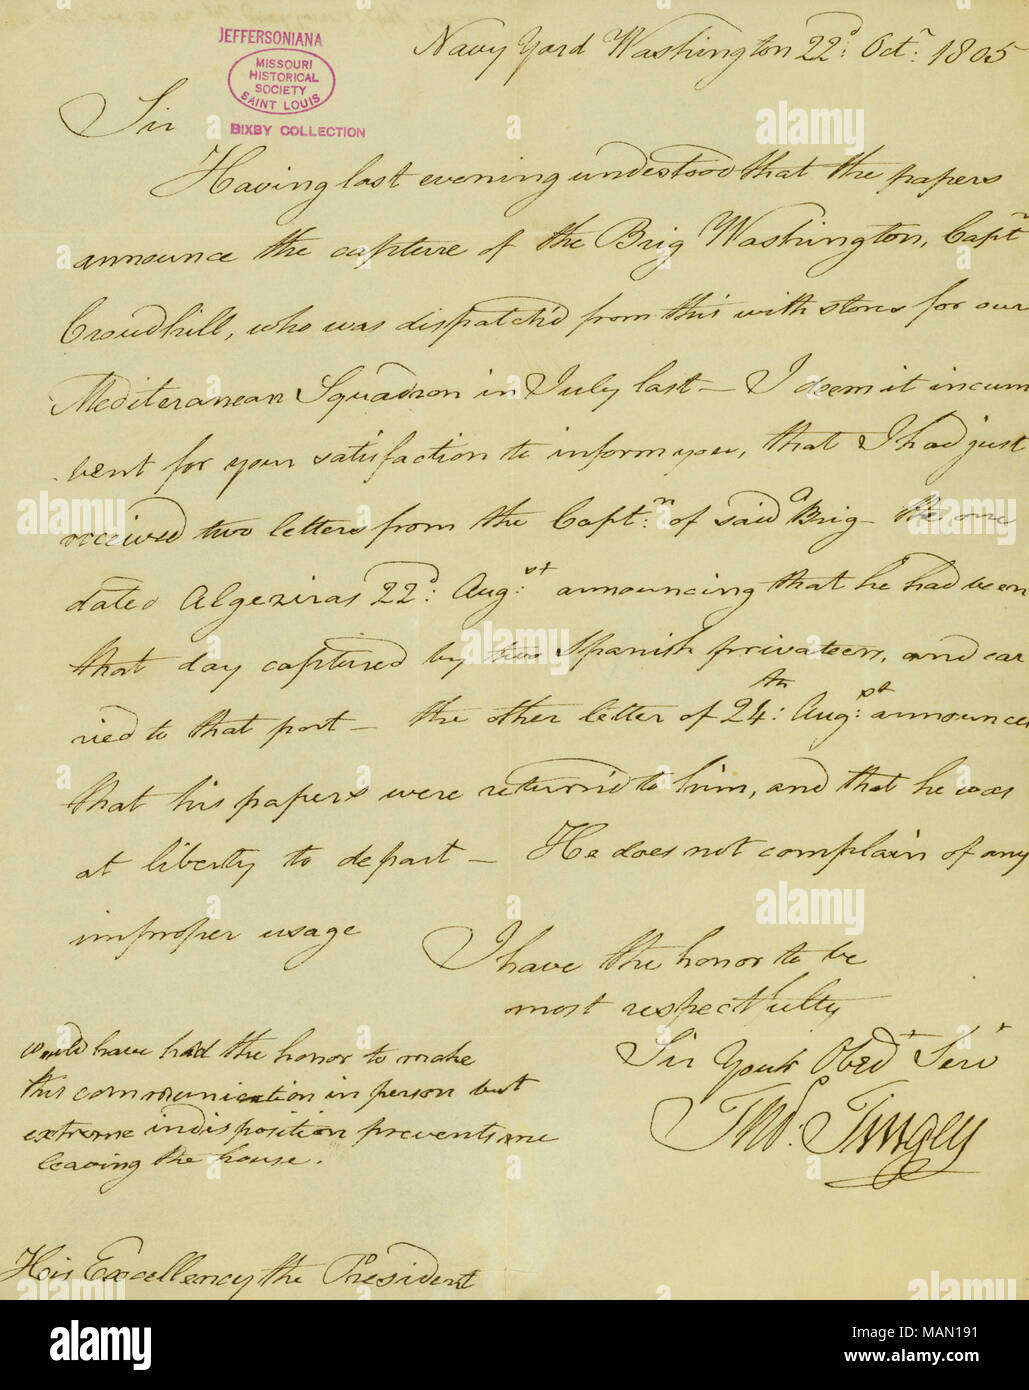 Navy Yard Washington 22d: Octr: 1805
JEFFERSONIANA
MISSOURI
HISTORICAL
SOCIETY
SAINT LOUIS
BIXBY COLLECTION
Sir
Having last evening understood that the papers
announce the capture of the Brig Washington, Captn
Croudhill, who was dispatch'd from this with stores for our
Mediteranean Squadron in July last – I deem it incum
bent for your satisfaction to inform you, that I had just
received two letters from the Captn: of said Brig – the one
dated Algeziras 22d: Augst: announcing that he had been
that day captured by two Spanish privateers, and car
ried to that port – the other letter of 24th: Augst: announces
that his papers were return'd to him, and that he was
at liberty to depart – He does not complain of any
improper usage
I have the honor to be
most respectfully
Sir Your Obedt Servt
Thos. Tingey
would have had the honor to make
this communication in person but
extreme indisposition prevents me
leaving the house.
His Excellency the President
alamy
alamy
Image ID: MAN191
www.alamy.com